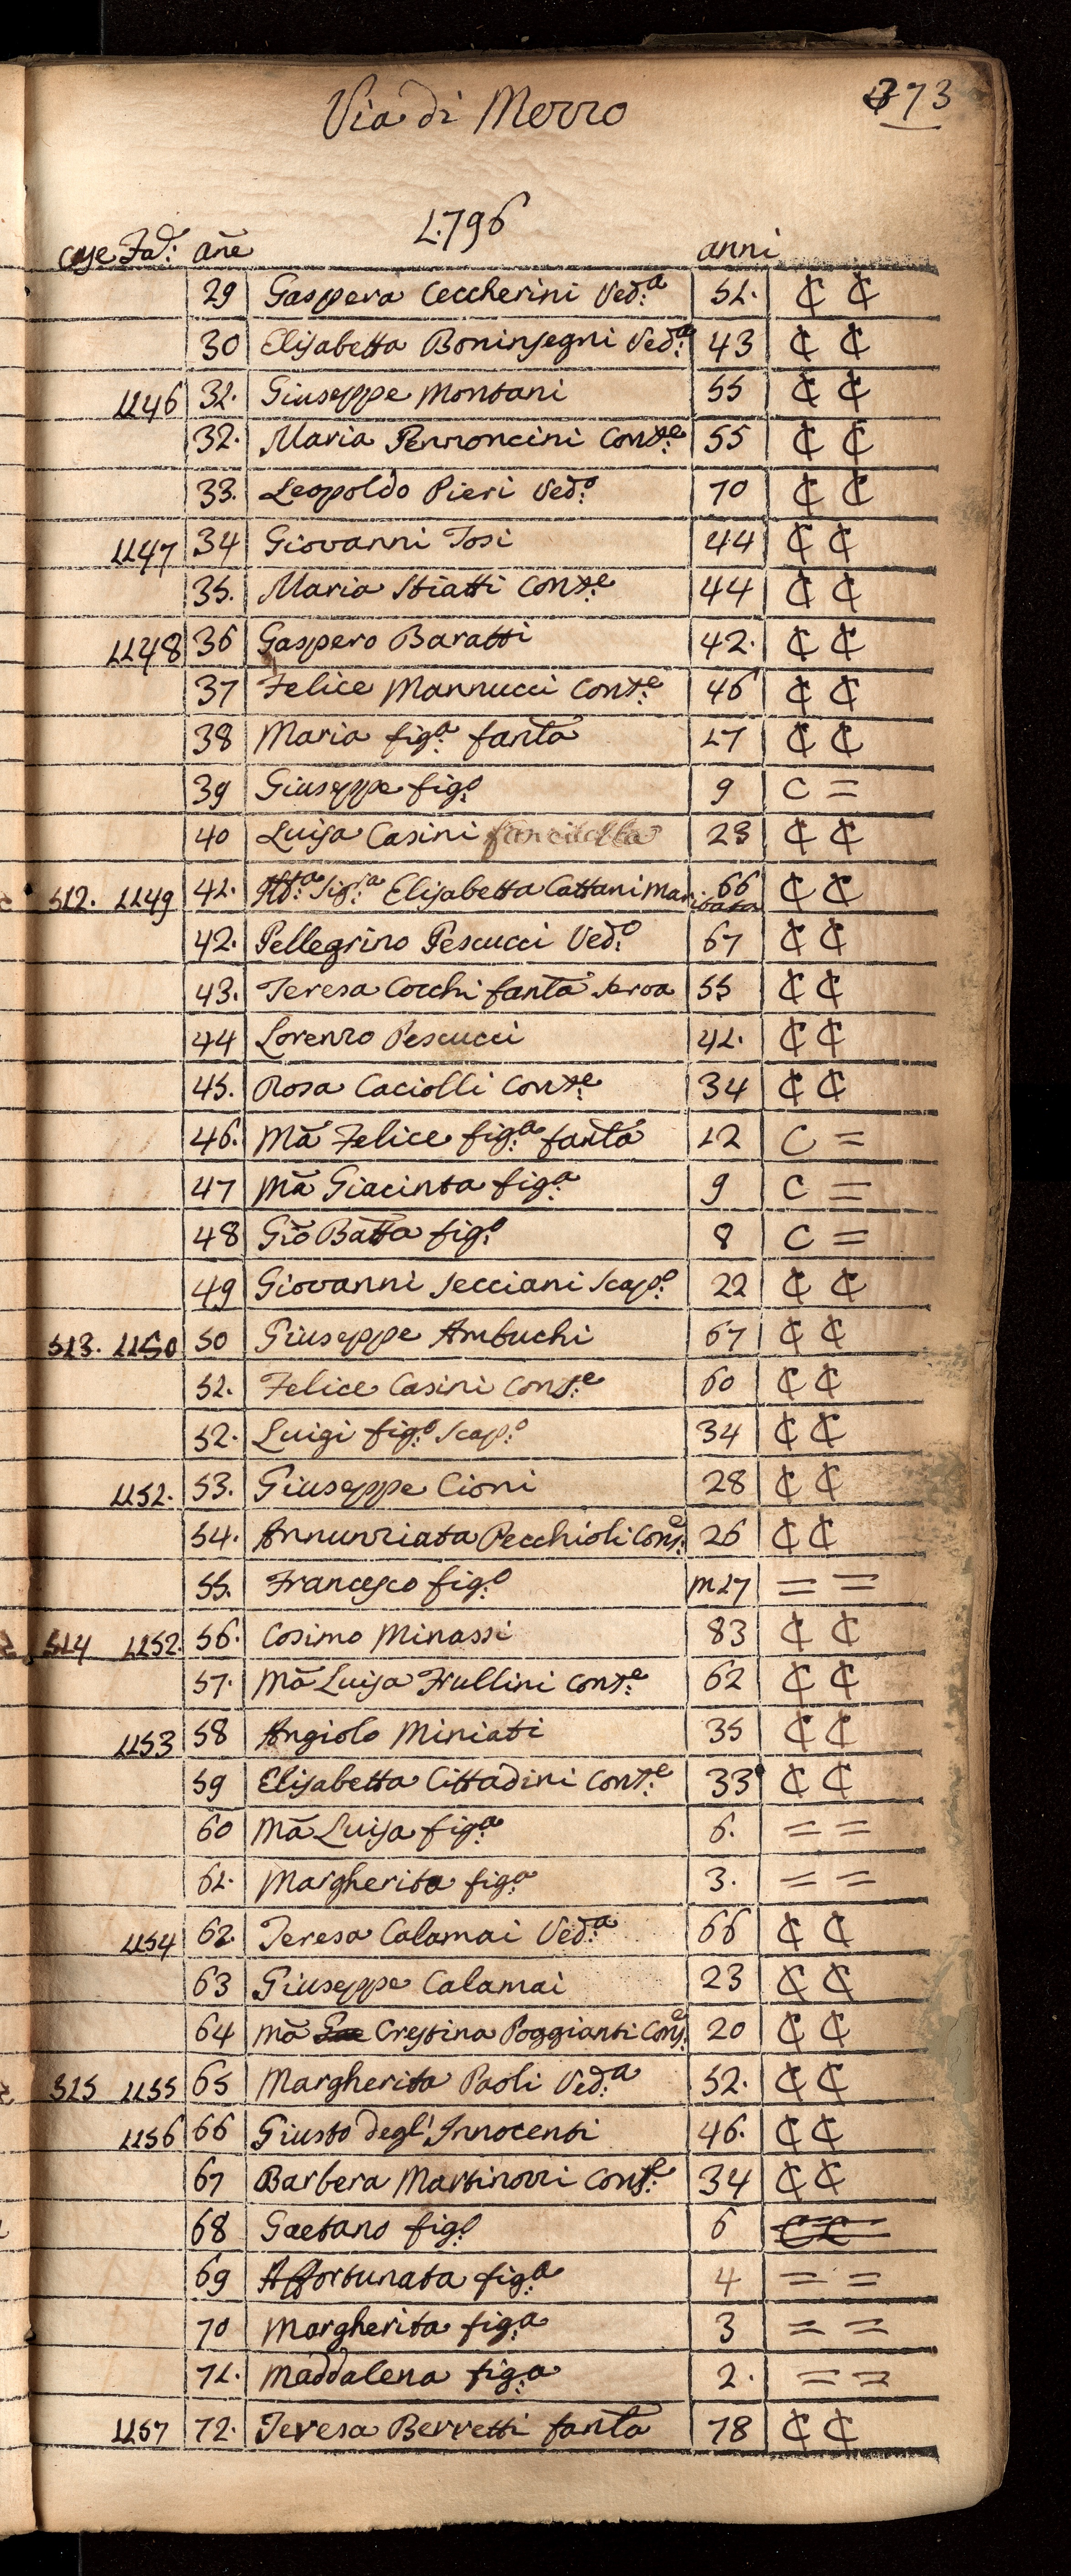 Via di Mezzo
373
1796
case Fa: ãne anni
29 Gaspera Ceccherini Ved:a 51. ₵ ₵
30 Elisabetta Boninsegni Ved:a 43 ₵ ₵
1146 31. Giuseppe Montani 55 ₵ ₵
32. Maria Perroncini Cons:e 55 ₵ ₵
33. Leopoldo Pieri Ved:o 70 ₵ ₵
1147 34 Giovanni Tosi 44 ₵ ₵
35. Maria Stiatti Cons:e 44 ₵ ₵
1148 36 Gaspero Baratti 42. ₵ ₵
37 Felice Mannucci Cons:e 46 ₵ ₵
38 Maria fig:a fanta 17 ₵ ₵
39 Giuseppe fig:o 9 C =
40 Luisa Casini fanciulla 23 ₵ ₵
512. 1149 41. Ill:a Sig:a Elisabetta Cattani Maritata 66 ₵ ₵
42. Pellegrino Pescucci Ved:o 67 ₵ ₵
43. Teresa Cocchi fanta serva 55 ₵ ₵
44 Lorenzo Pescucci 41. ₵ ₵
45. Rosa Caciolli Cons:e 34 ₵ ₵
46. Mã Felice fig:a fanta 12 C =
47 Mã Giacinta fig:a 9 C =
48 Giõ Batta fig:o 8 C =
49 Giovanni Secciani Scap:o 22 ₵ ₵
513. 1150 50 Giuseppe Ambuchi 67 ₵ ₵
51. Felice Casini Cons:e 60 ₵ ₵
52. Luigi fig:o Scap:o 34 ₵ ₵
1151. 53. Giuseppe Cioni 28 ₵ ₵
54. Annunziata Pecchioli Cons:e 26 ₵ ₵
55. Francesco fig:o m17 = =
514 1152. 56. Cosimo Minassi 83 ₵ ₵
57. Mã Luisa Frullini Cons:e 62 ₵ ₵
1153 58 Angiolo Miniati 35 ₵ ₵
59 Elisabetta Cittadini Cons:e 33 ₵ ₵
60 Mã Luisa fig:a 6. = =
61. Margherita fig:a 3. = =
1154 62. Teresa Calamai Ved:a 66 ₵ ₵
63 Giuseppe Calamai 23 ₵ ₵
64 Mã Crestina Poggianti Cons:e 20 ₵ ₵
515 1155 65 Margherita Paoli Ved:a 52. ₵ ₵
1156 66 Giusto degl' Innocenti 46. ₵ ₵
67 Barbera Martinozzi Cons:e 34 ₵ ₵
68 Gaetano fig:o 6 = =
69 Affortunata fig:a 4 = =
70 Margherita fig:a 3 = =
71. Maddalena fig:a 2. = =
1157 72. Teresa Berretti fanta 78 ₵ ₵